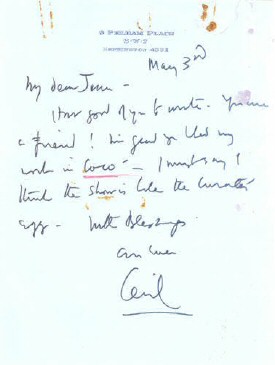 8 PELHAM PLACE
S·W·7
KENSINGTON 4021
May 3rd
My dear Jane –
How good of you to write. You are
a friend! I'm glad you liked my
work in Coco – I must say I
think the show is like the curate's
egg – With Blessings
Cecil